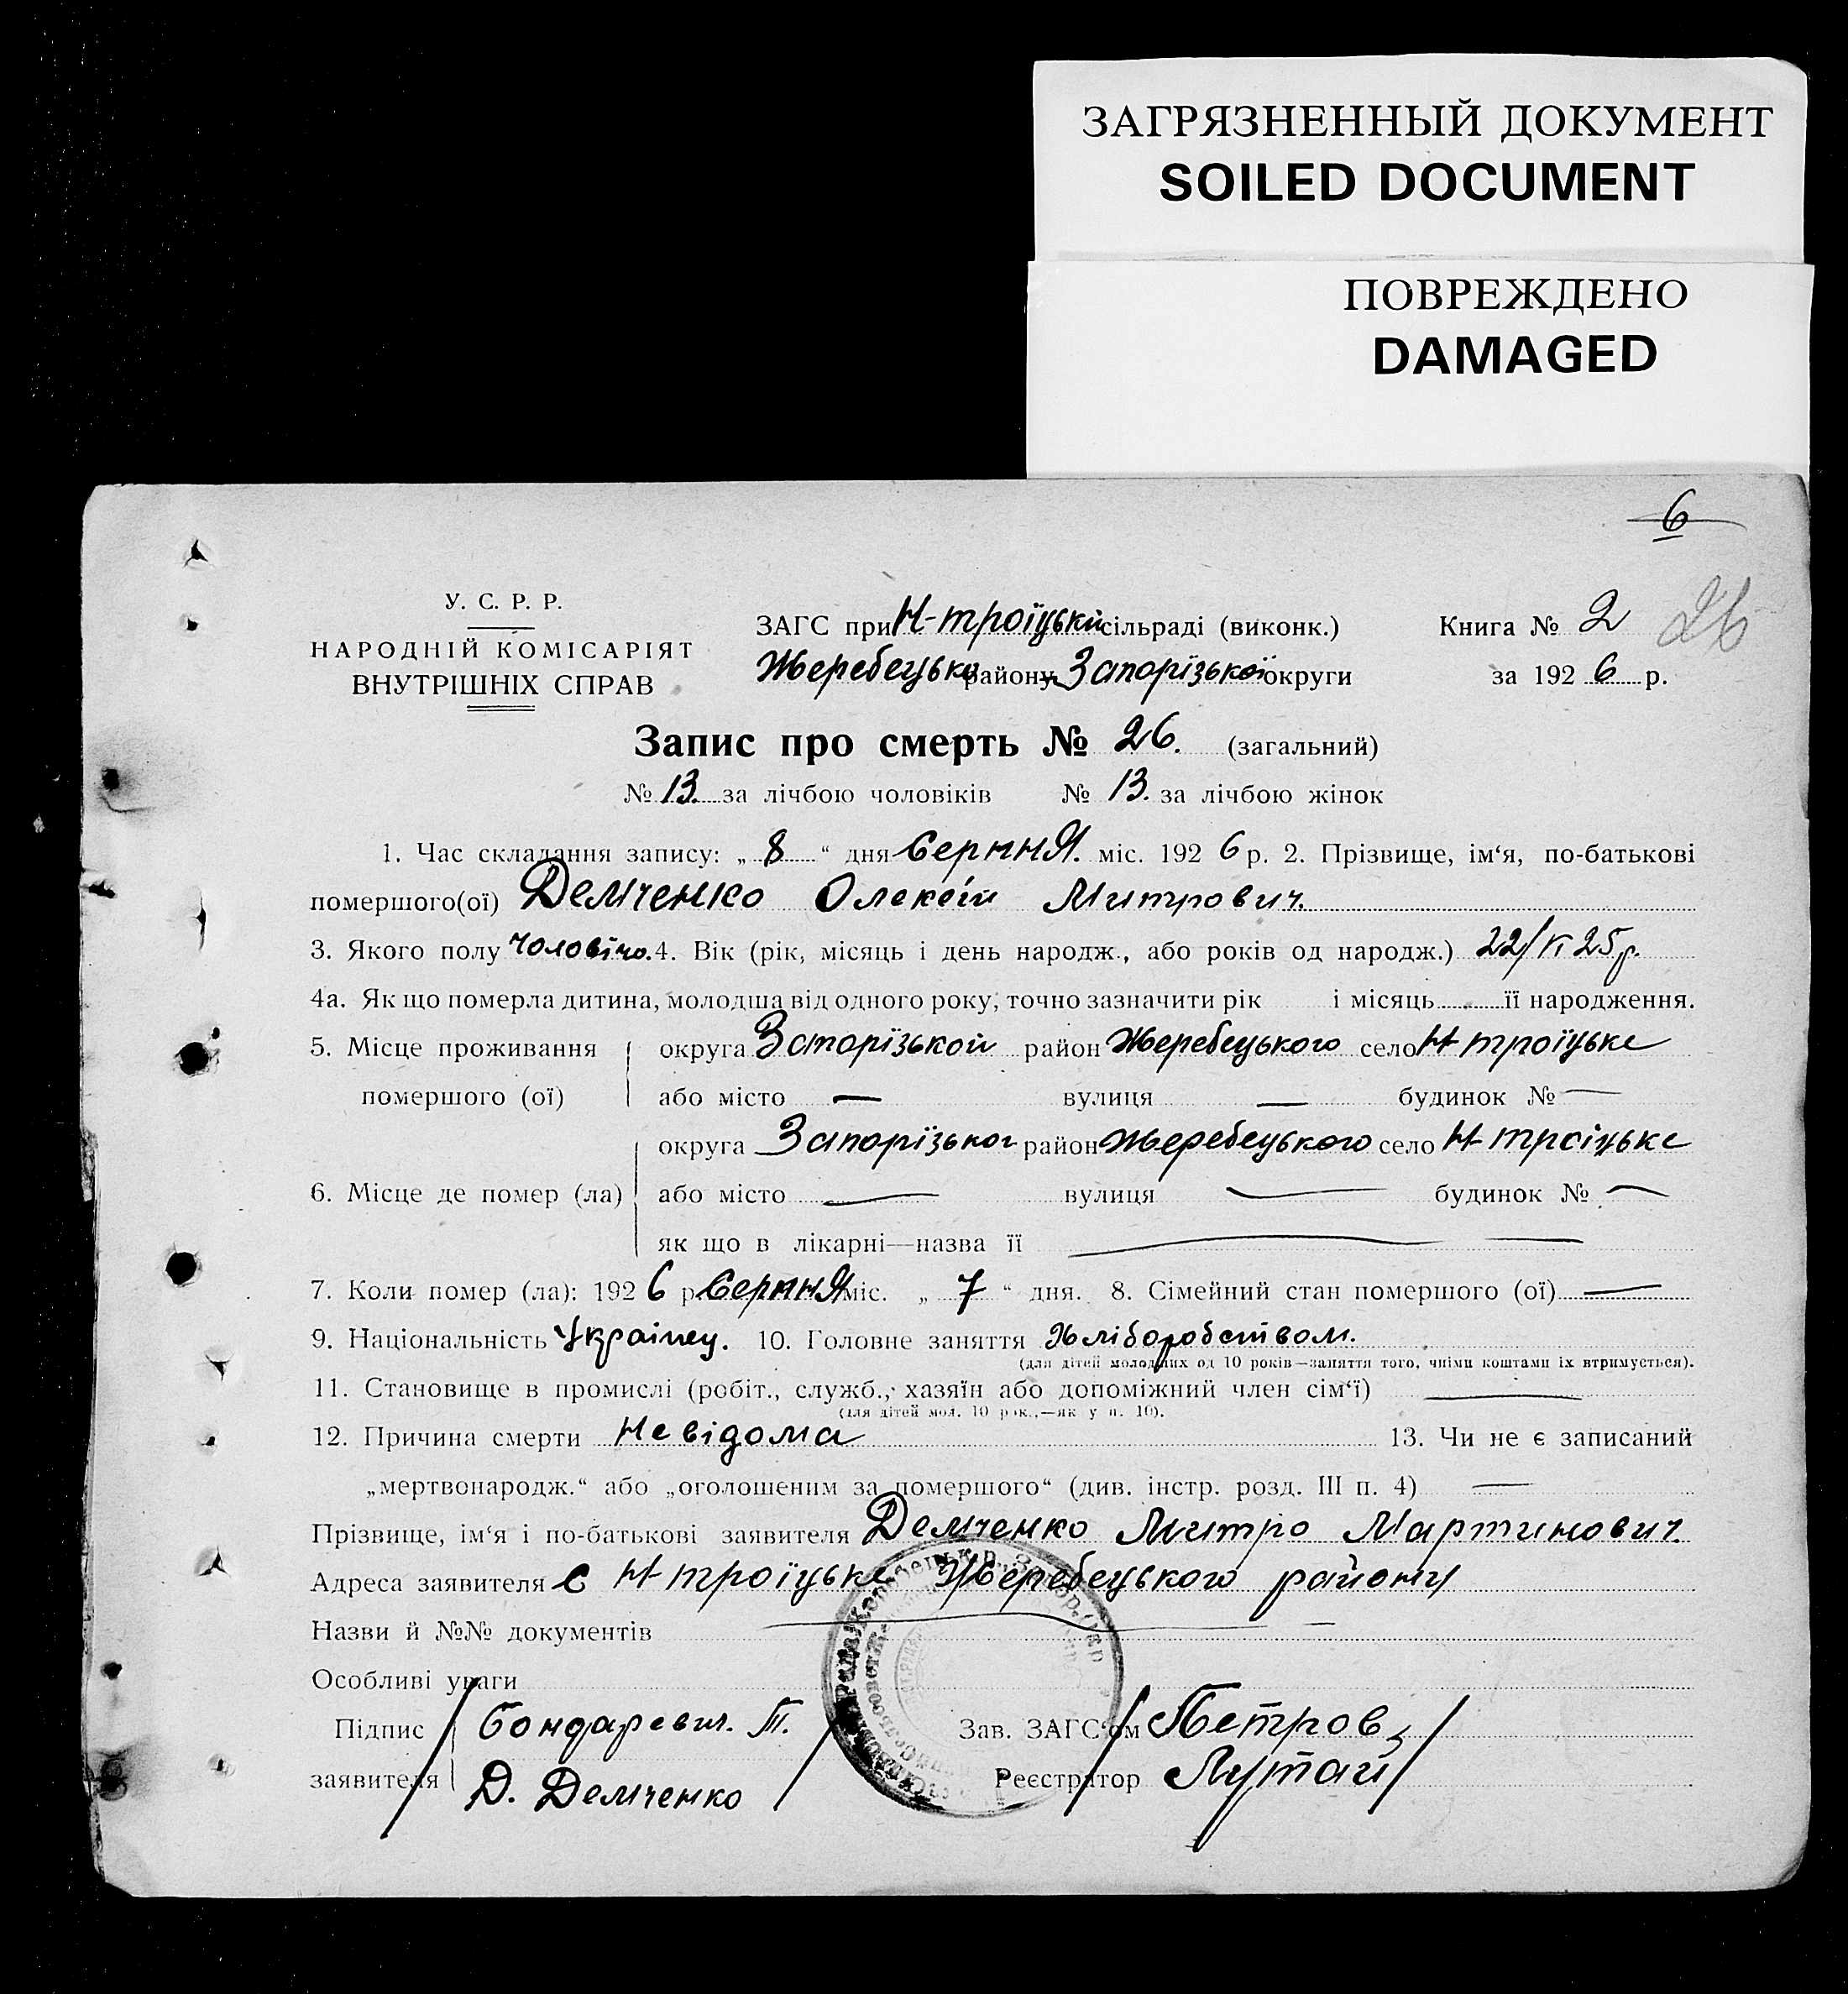 ЗАГРЯЗНЕННЫЙ ДОКУМЕНТ
SOILED DOCUMENT
ПОВРЕЖДЕНО
DAMAGED
6
У. С. Р. Р.
НАРОДНІЙ КОМІСАРІЯТ
ВНУТРІШНІХ СПРАВ
ЗАГС при Н-троїцькій сільраді (виконк.)
Жеребецько району Запорізької округи
Книга № 2 26
за 192 6 р.
Запис про смерть № 26. (загальний)
№ 13. за лічбою чоловіків № 13. за лічбою жінок
1. Час складання запису: „ 8 “ дня Серпня. міс. 192 6 р. 2. Прізвище, ім‘я, по-батькові
помершого(ої) Демченко Олексій Митрович.
3. Якого полу чоловічо. 4. Вік (рік, місяць і день народж., або років од народж.) 22/ 25р.
4а. Як що померла дитина, молодша від одного року, точно зазначити рік і місяць її народження.
5. Місце проживання округа Запорізькой район Жеребецького село Н троїцьке
помершого (ої) або місто — вулиця — будинок № —
округа Запорізької район Жеребецького село Н троіцьке
6. Місце де помер (ла) або місто — вулиця — будинок № —
як що в лікарні—назва її — —
7. Коли помер (ла): 192 6 р. Серпня міс. „ 7 “ дня. 8. Сімейний стан помершого (ої) —
9. Національність Українец. 10. Головне заняття Хліборобством.
(для дітей молодших од 10 років—заняття того, чиїми коштами їх втримується).
11. Становище в промислі (робіт., служб., хазяїн або допоміжний член сім‘ї) —
(для дітей мол. 10 рок.,—як у п. 10).
12. Причина смерти Невідома 13. Чи не є записаний
„мертвонародж.“ або „оголошеним за помершого“ (див. інстр. розд. III п. 4) —
Прізвище, ім‘я і по-батькові заявителя Демченко Митро Мартинович.
Адреса заявителя с Н троїцьке Жеребецького району
Назви й №№ документів —
Особливі уваги
Підпис Бондаревич. Т. Зав. ЗАГС‘ом Петров
заявителя Д. Демченко Реєстратор Лутай